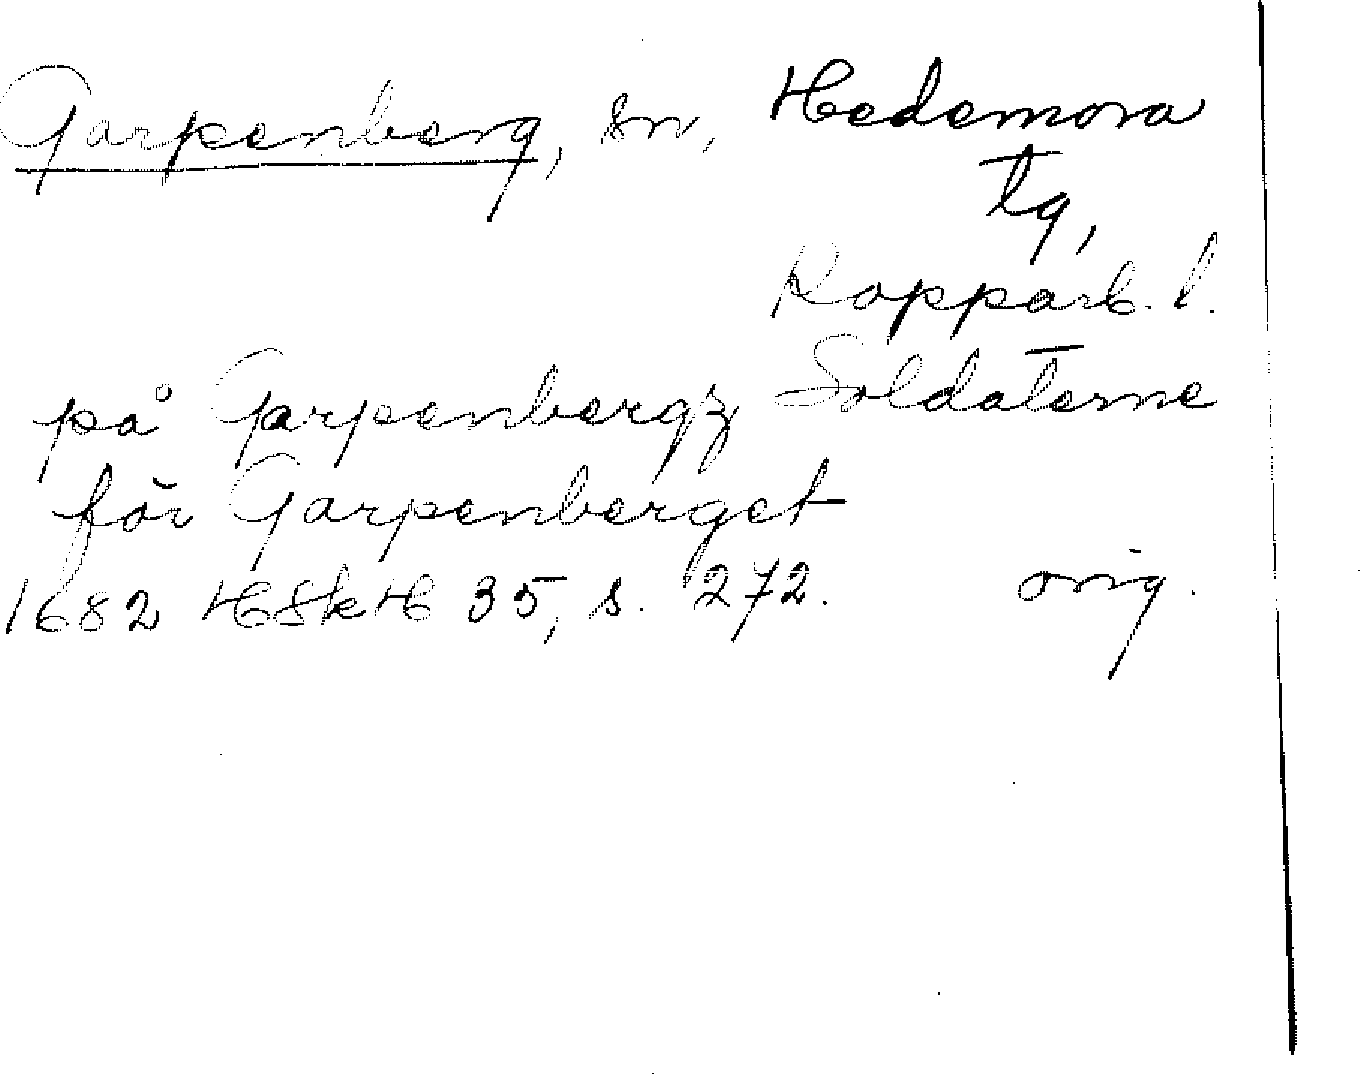 Garpenberg, sn, Hedemora
tg,
Kopparb. l.
på Garpenbergz Soldaterne
för Garpenberget
1682 HSkH 35, s. 272. orig.